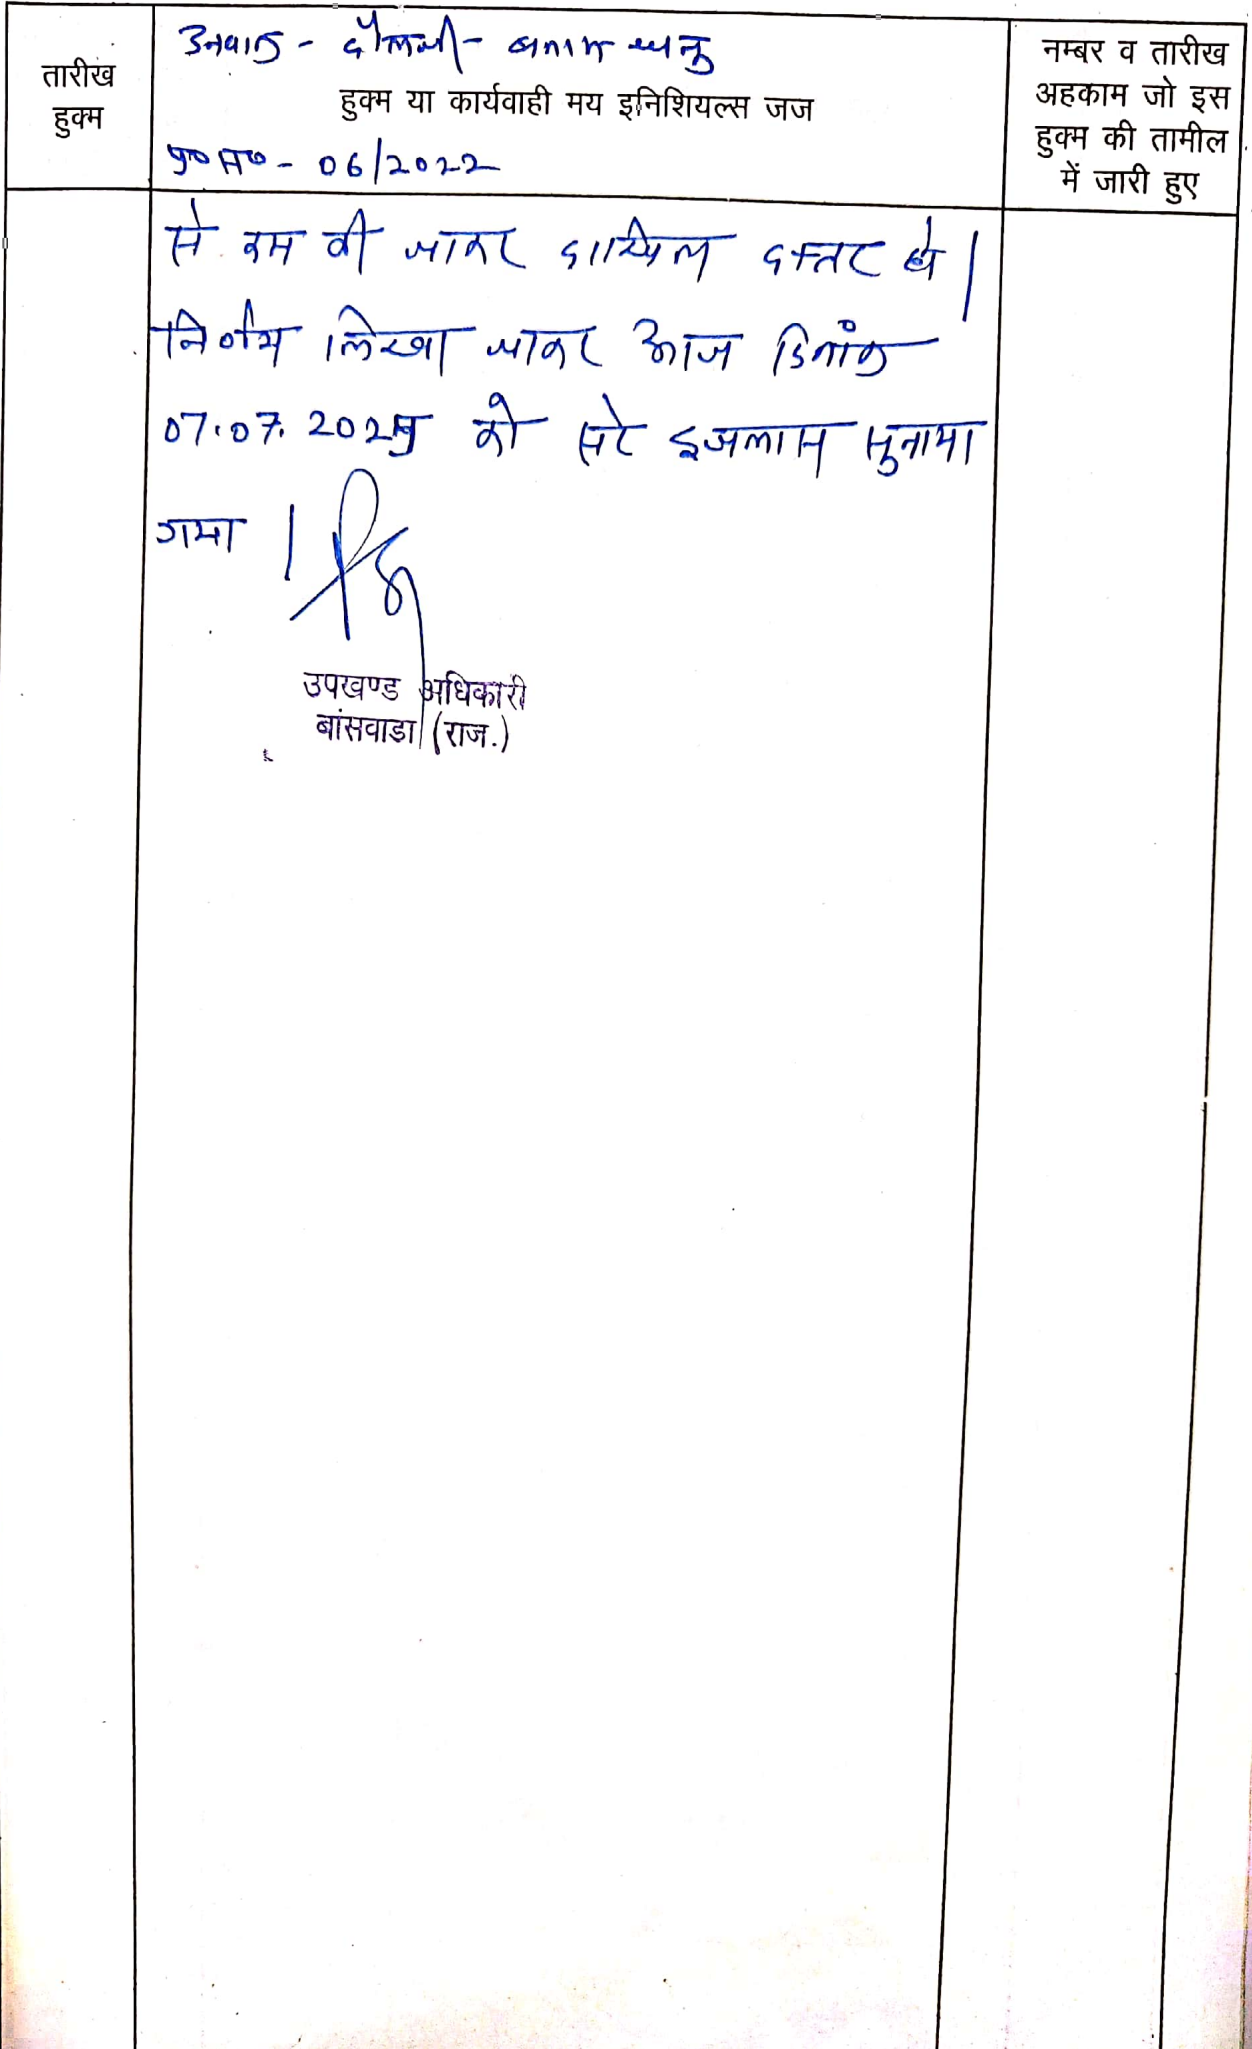 तारीख
हुक्म
उनवान - दौलजी - बनाम धनु
हुक्म या कार्यवाही मय इनिशियल्स जज
प्र० स० - 06/2022
नम्बर व तारीख
अहकाम जो इस
हुक्म की तामील
में जारी हुए
से कम की जाकर दाखिल दफ्तर हो।
निर्णय लिखा जाकर आज दिनांक
07.07.2025 को सरे इजलास सुनाया
गया।
उपखण्ड अधिकारी
बांसवाडा (राज.)